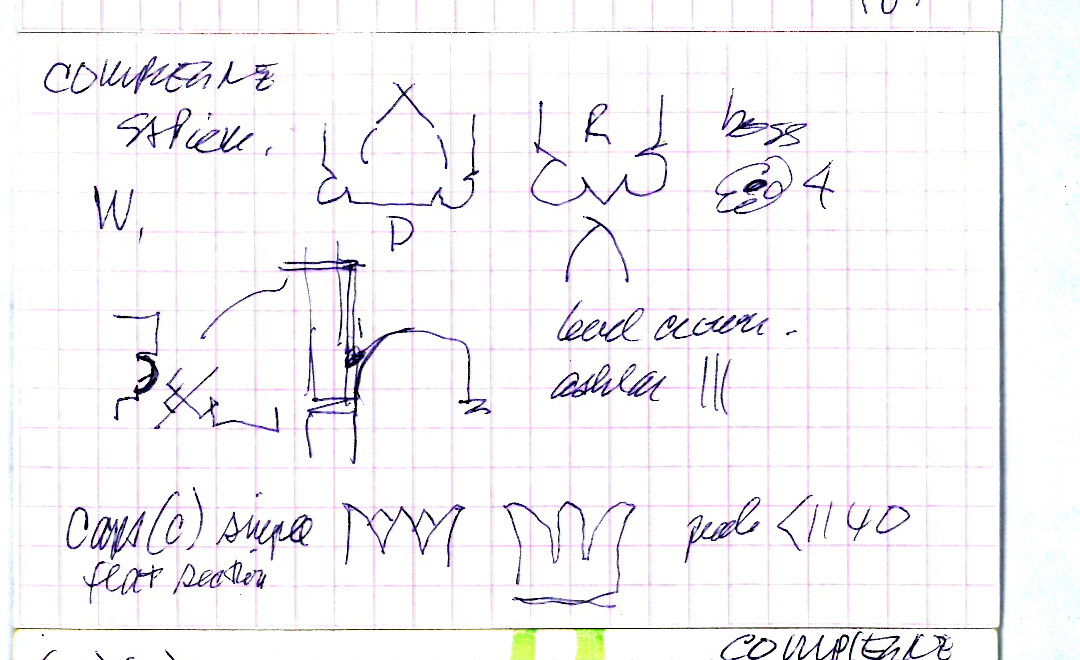 COMPIEGNE
St Pierre.
W,
R
boss
4
D
level crown -
ashlar |||
Caps (C) simple
flat section
prob <1140
COMPIEGNE